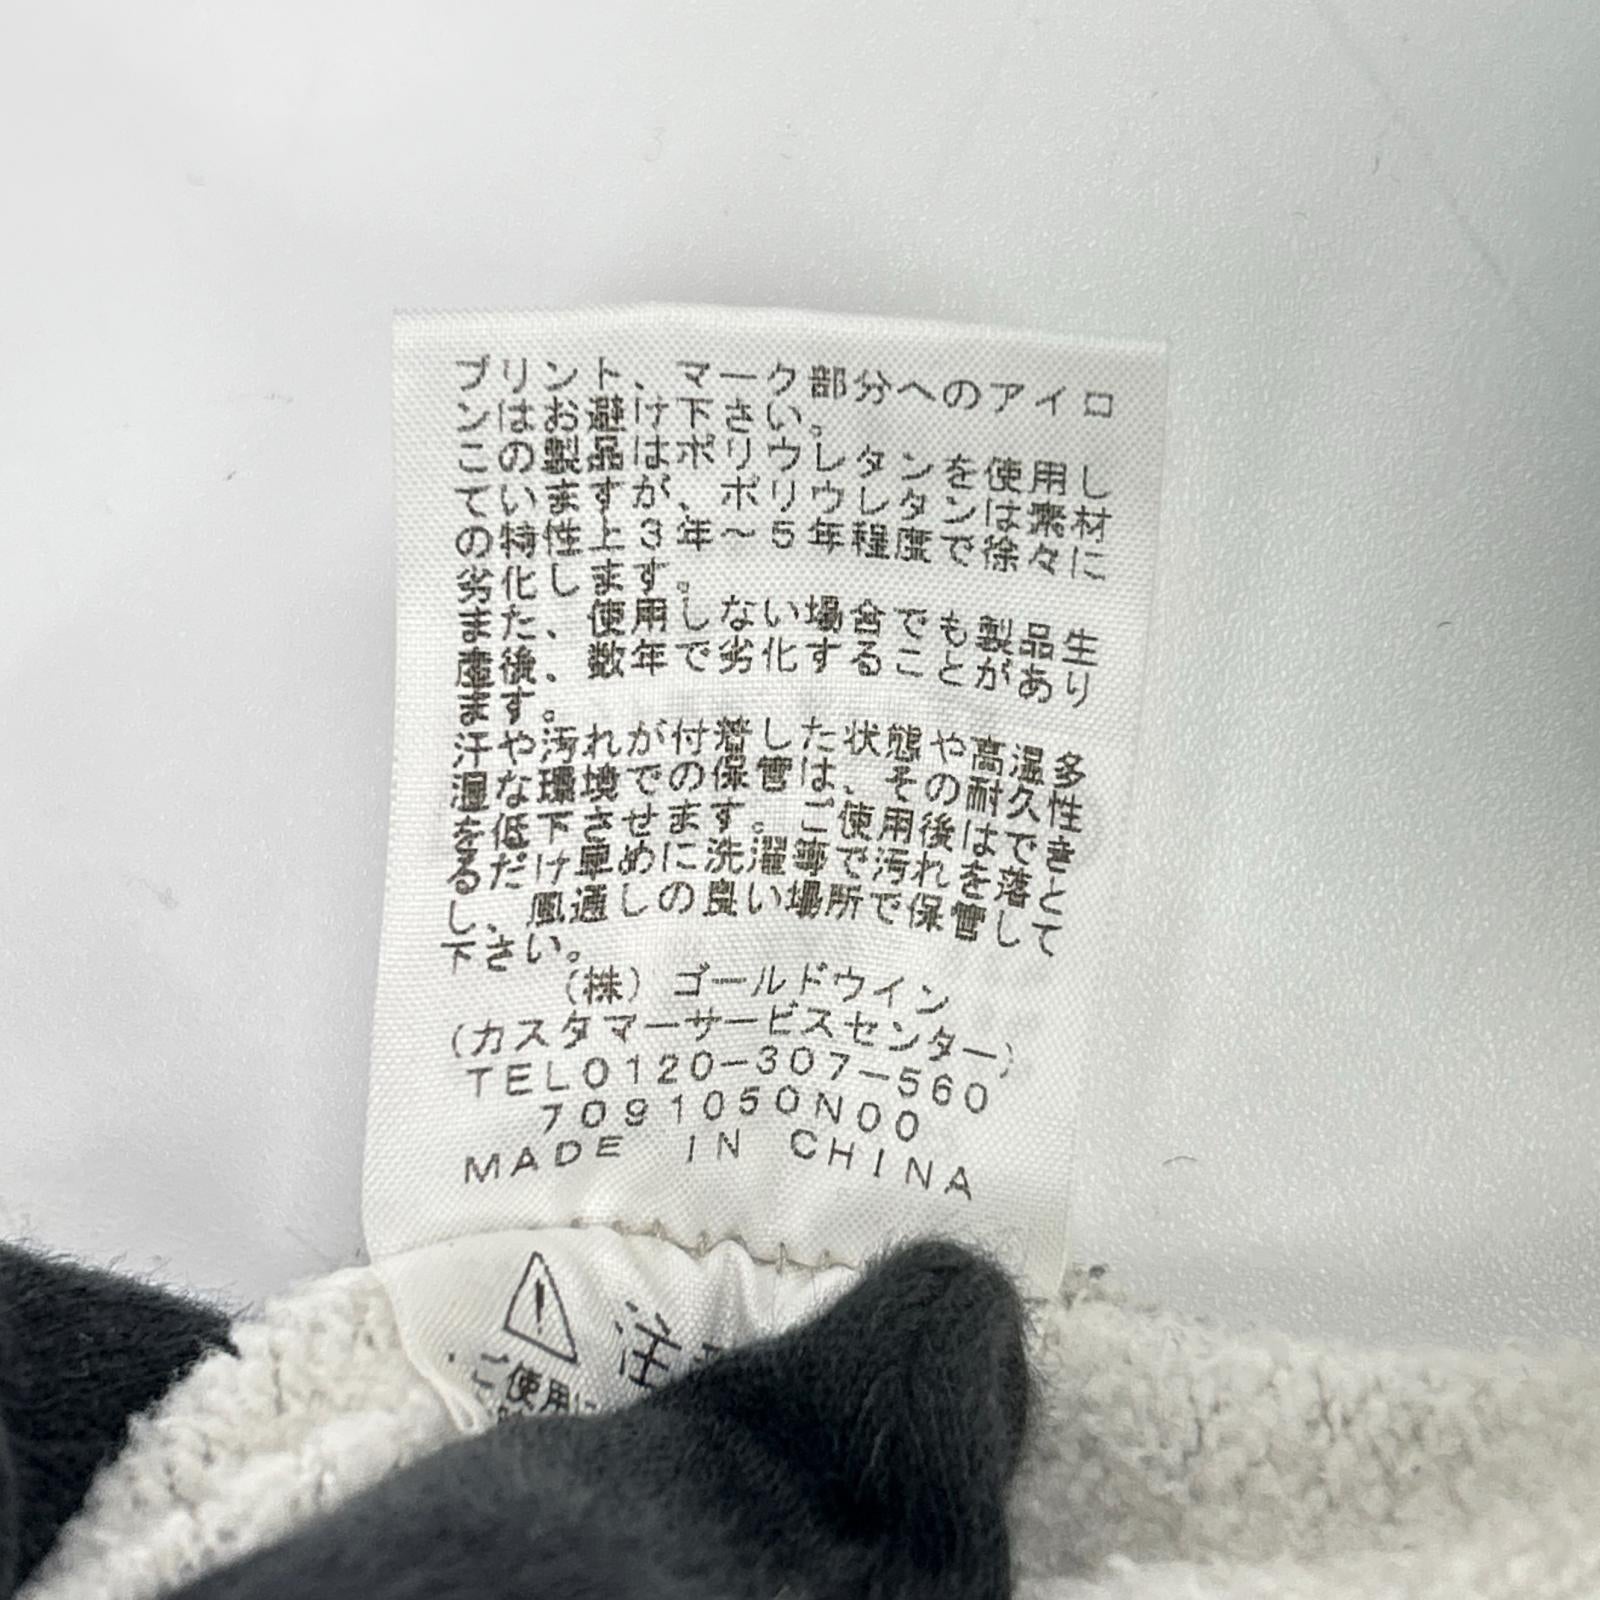 プリント、マーク部分へのアイロ
ンはお避け下さい。
この製品はポリウレタンを使用し
ていますが、ポリウレタンは素材
の特性上3年～5年程度で徐々に
劣化します。
また、使用しない場合でも製品生
産後、数年で劣化することがあり
ます。
汗や汚れが付着した状態や高温多
湿な環境での保管は、その耐久性
を低下させます。ご使用後はできる
だけ早めに洗濯等で汚れを落と
し、風通しの良い場所で保管して
下さい。
(株)ゴールドウイン
(カスタマーサービスセンター)
TEL0120-307-560
7091050N00
MADE IN CHINA
注
ご使用